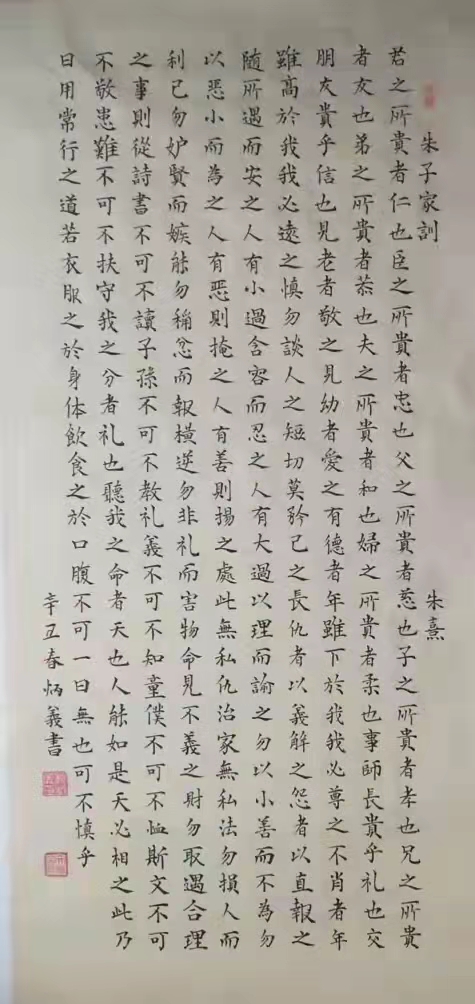 朱子家訓 朱熹
君之所貴者仁也臣之所貴者忠也父之所貴者慈也子之所貴者孝也兄之所貴
者友也弟之所貴者恭也夫之所貴者和也婦之所貴者柔也事師長貴乎礼也交
朋友貴乎信也見老者敬之見幼者愛之有德者年雖下於我我必尊之不肖者年
雖高於我我必遠之慎勿談人之短切莫矜己之長仇者以義解之怨者以直報之
隨所遇而安之人有小過含容而忍之人有大過以理而諭之勿以小善而不為勿
以惡小而為之人有惡則掩之人有善則揚之處此無私仇治家無私法勿損人而
利己勿妒賢而嫉能勿稱忿而報橫逆勿非礼而害物命見不義之財勿取遇合理
之事則從詩書不可不讀子孫不可不教礼義不可不知童僕不可不恤斯文不可
不敬患難不可不扶守我之分者礼也聽我之命者天也人能如是天必相之此乃
日用常行之道若衣服之於身体飲食之於口腹不可一日無也可不慎乎
辛丑春炳義書